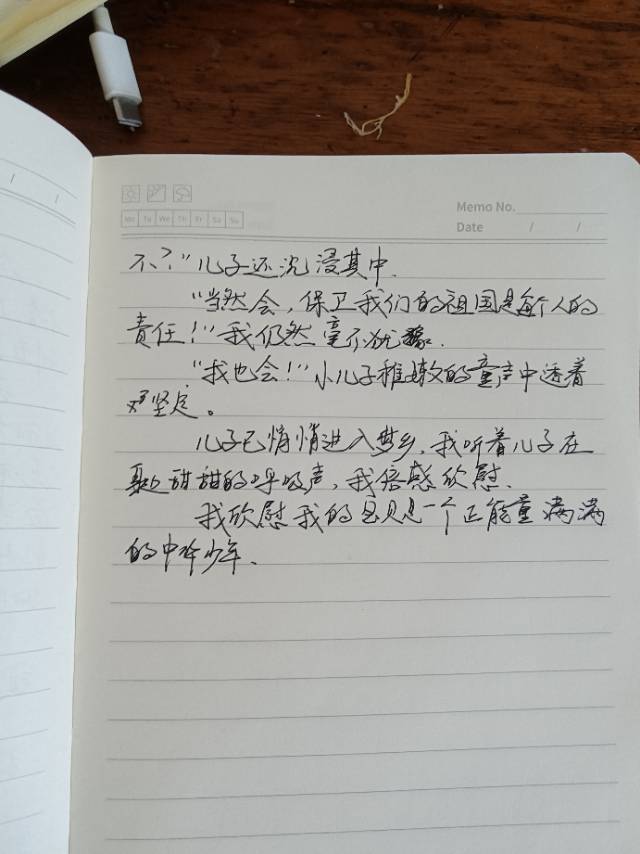 Memo No.
Mo Tu We Th Fr Sa Su
Date / /
不?"儿子还沉浸其中.
"当然会,保卫我们的祖国是每个人的
责任!"我仍然毫不犹豫.
"我也会!"小儿子稚嫩的童声中透着
坚定。
儿子已悄悄进入梦乡,我听着儿子在
甜甜的呼吸声,我倍感欣慰.
我欣慰我的宝贝是一个正能量满满
的中华少年.